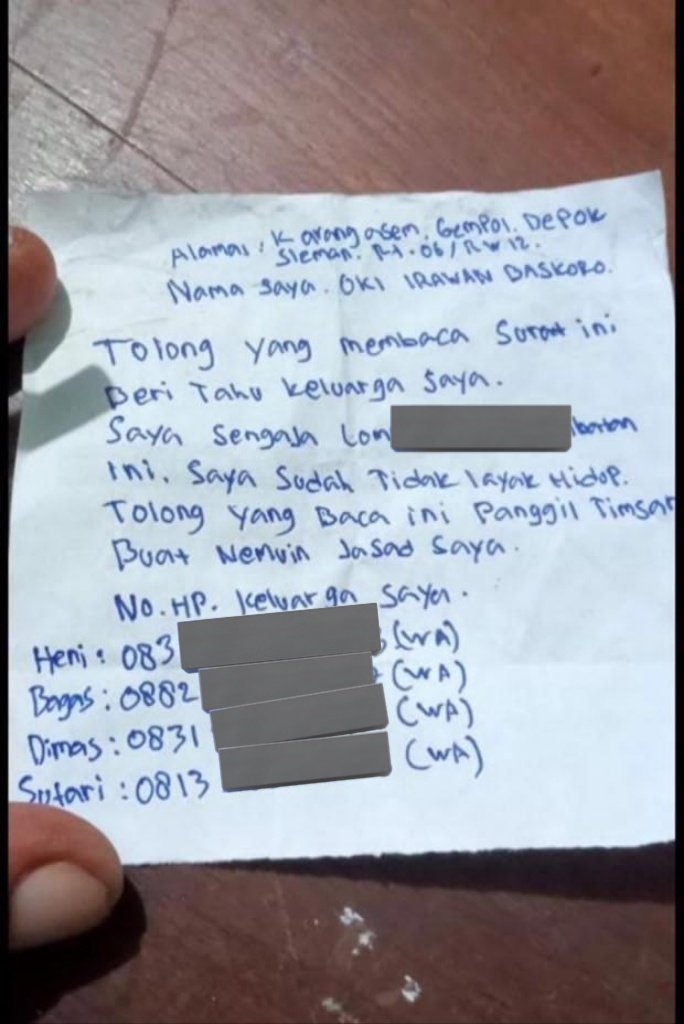 Alamat : Karangasem. Gempol. Depok
Sleman. RT. 06 / RW 12.
Nama saya. OKI IRAWAN BASKORO.
Tolong yang membaca Surat ini
Beri Tahu keluarga Saya.
Saya Sengaja Lom
ini. Saya Sudah Tidak layak Hidup.
Tolong yang Baca ini Panggil Timsar
Buat Nemuin Jasad Saya.
No. HP. Keluarga Saya.
Heni : 083 (WA)
Bagas : 0882 (WA)
Dimas : 0831 (WA)
Sutari : 0813 (WA)